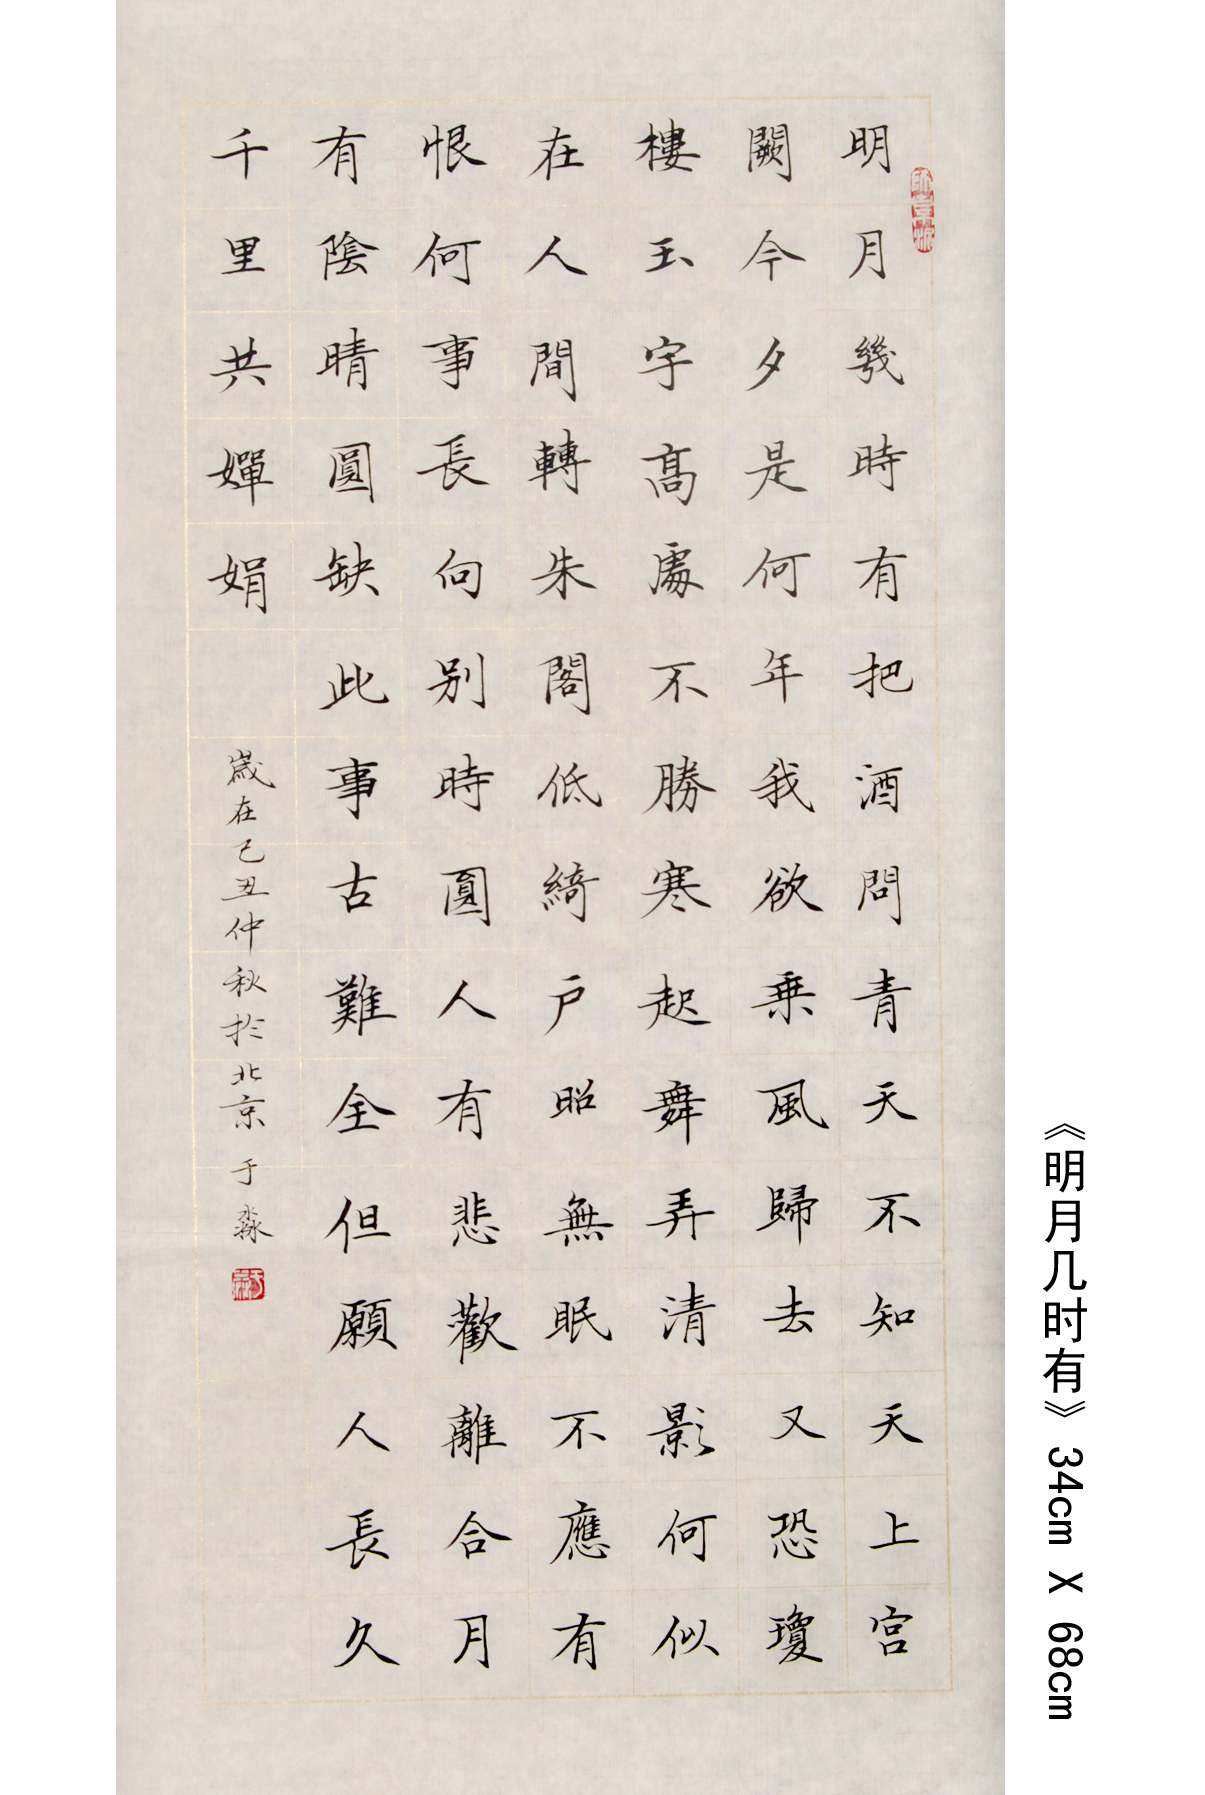 明月幾時有把酒問青天不知天上宮
闕今夕是何年我欲乗風歸去又恐瓊
樓玉宇髙處不勝寒起舞弄清影何似
在人間轉朱閣低綺戶昭無眠不應有
恨何事長向别時圓人有悲歡離合月
有陰晴圓缺此事古難全但願人長久
千里共嬋娟
歲在己丑仲秋於北京 于淼
《明月几时有》 34cm X 68cm